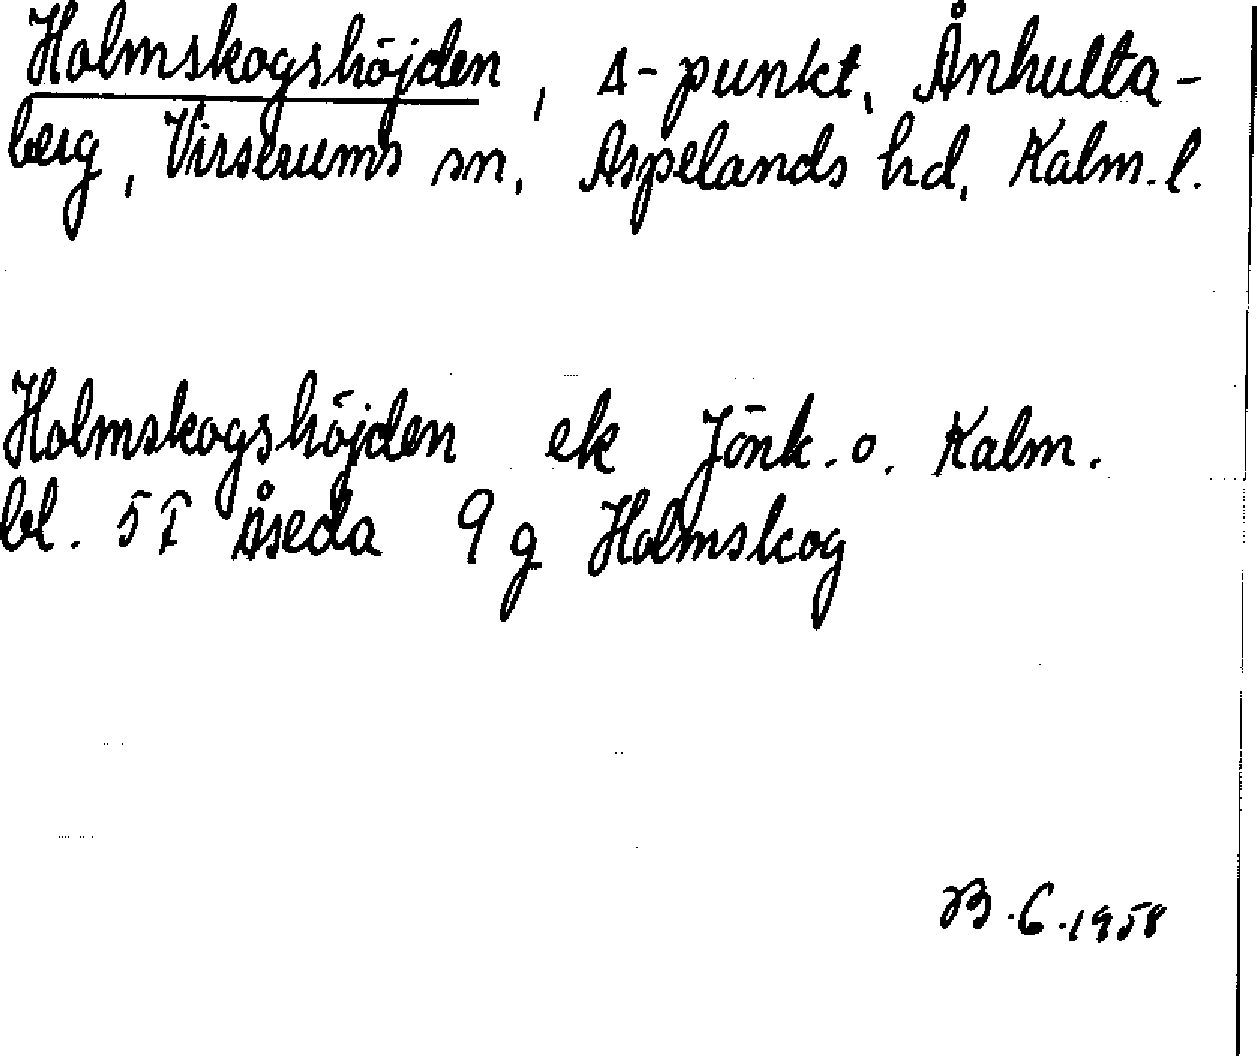 Holmskogshöjden, Δ-punkt, Ånhulta-
berg, Virserums sn, Aspelands hd, Kalm. l.
Holmskogshöjden ek Jönk. o. Kalm.
bl. 5 I Åseda 9 g Holmskog
B.G.1958